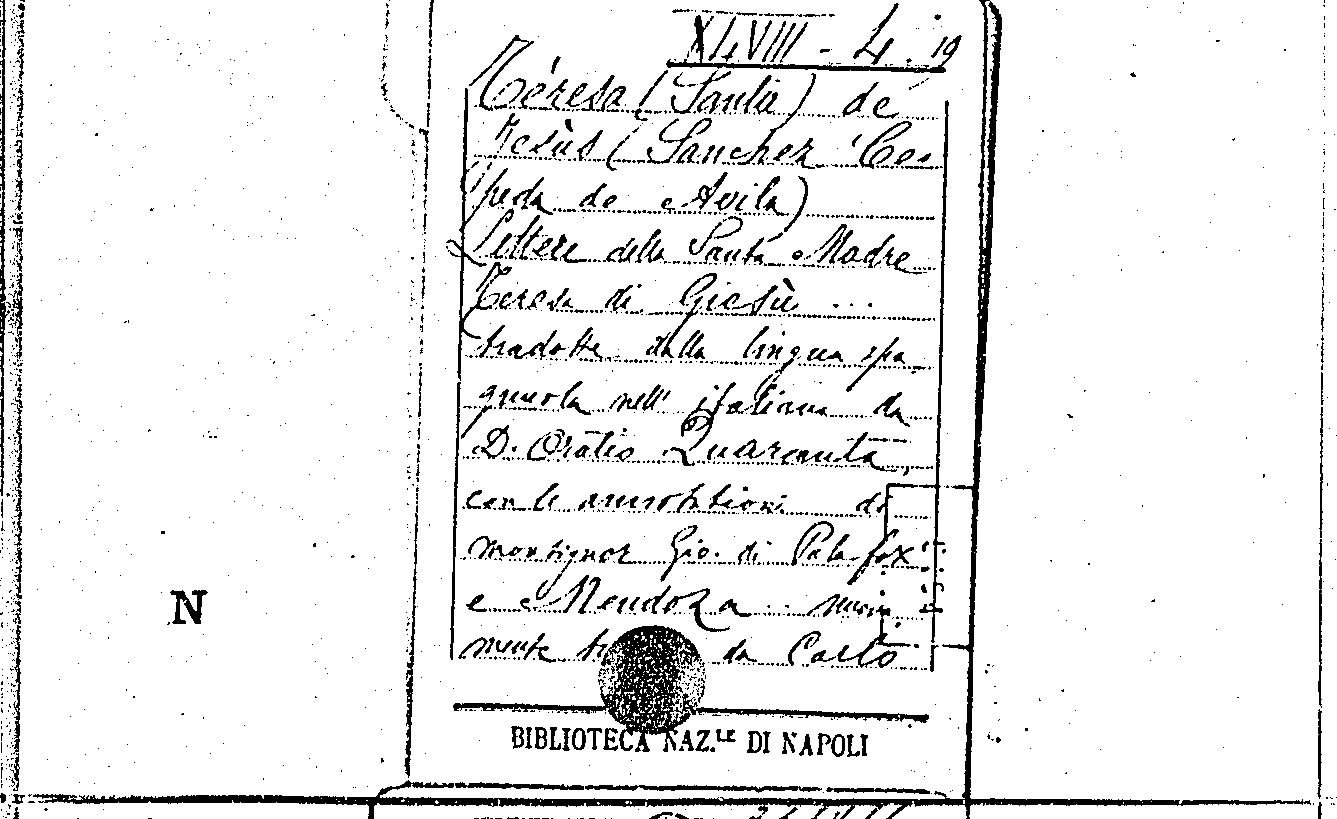 XLVIII - 4. 19
Téresa (Santa) de
Jesùs (Sanchez Ce-
peda de Avila)
Lettere della Santa Madre
Teresa di Giesù ...
tradotte dalla lingua spa
gnuola nell' italiana da
D. Oratio Quaranta,
con le annotationi di
monsignor Gio. di Palafox
e Mendoza ..
mente da Carlo
N
BIBLIOTECA NAZ.LE DI NAPOLI